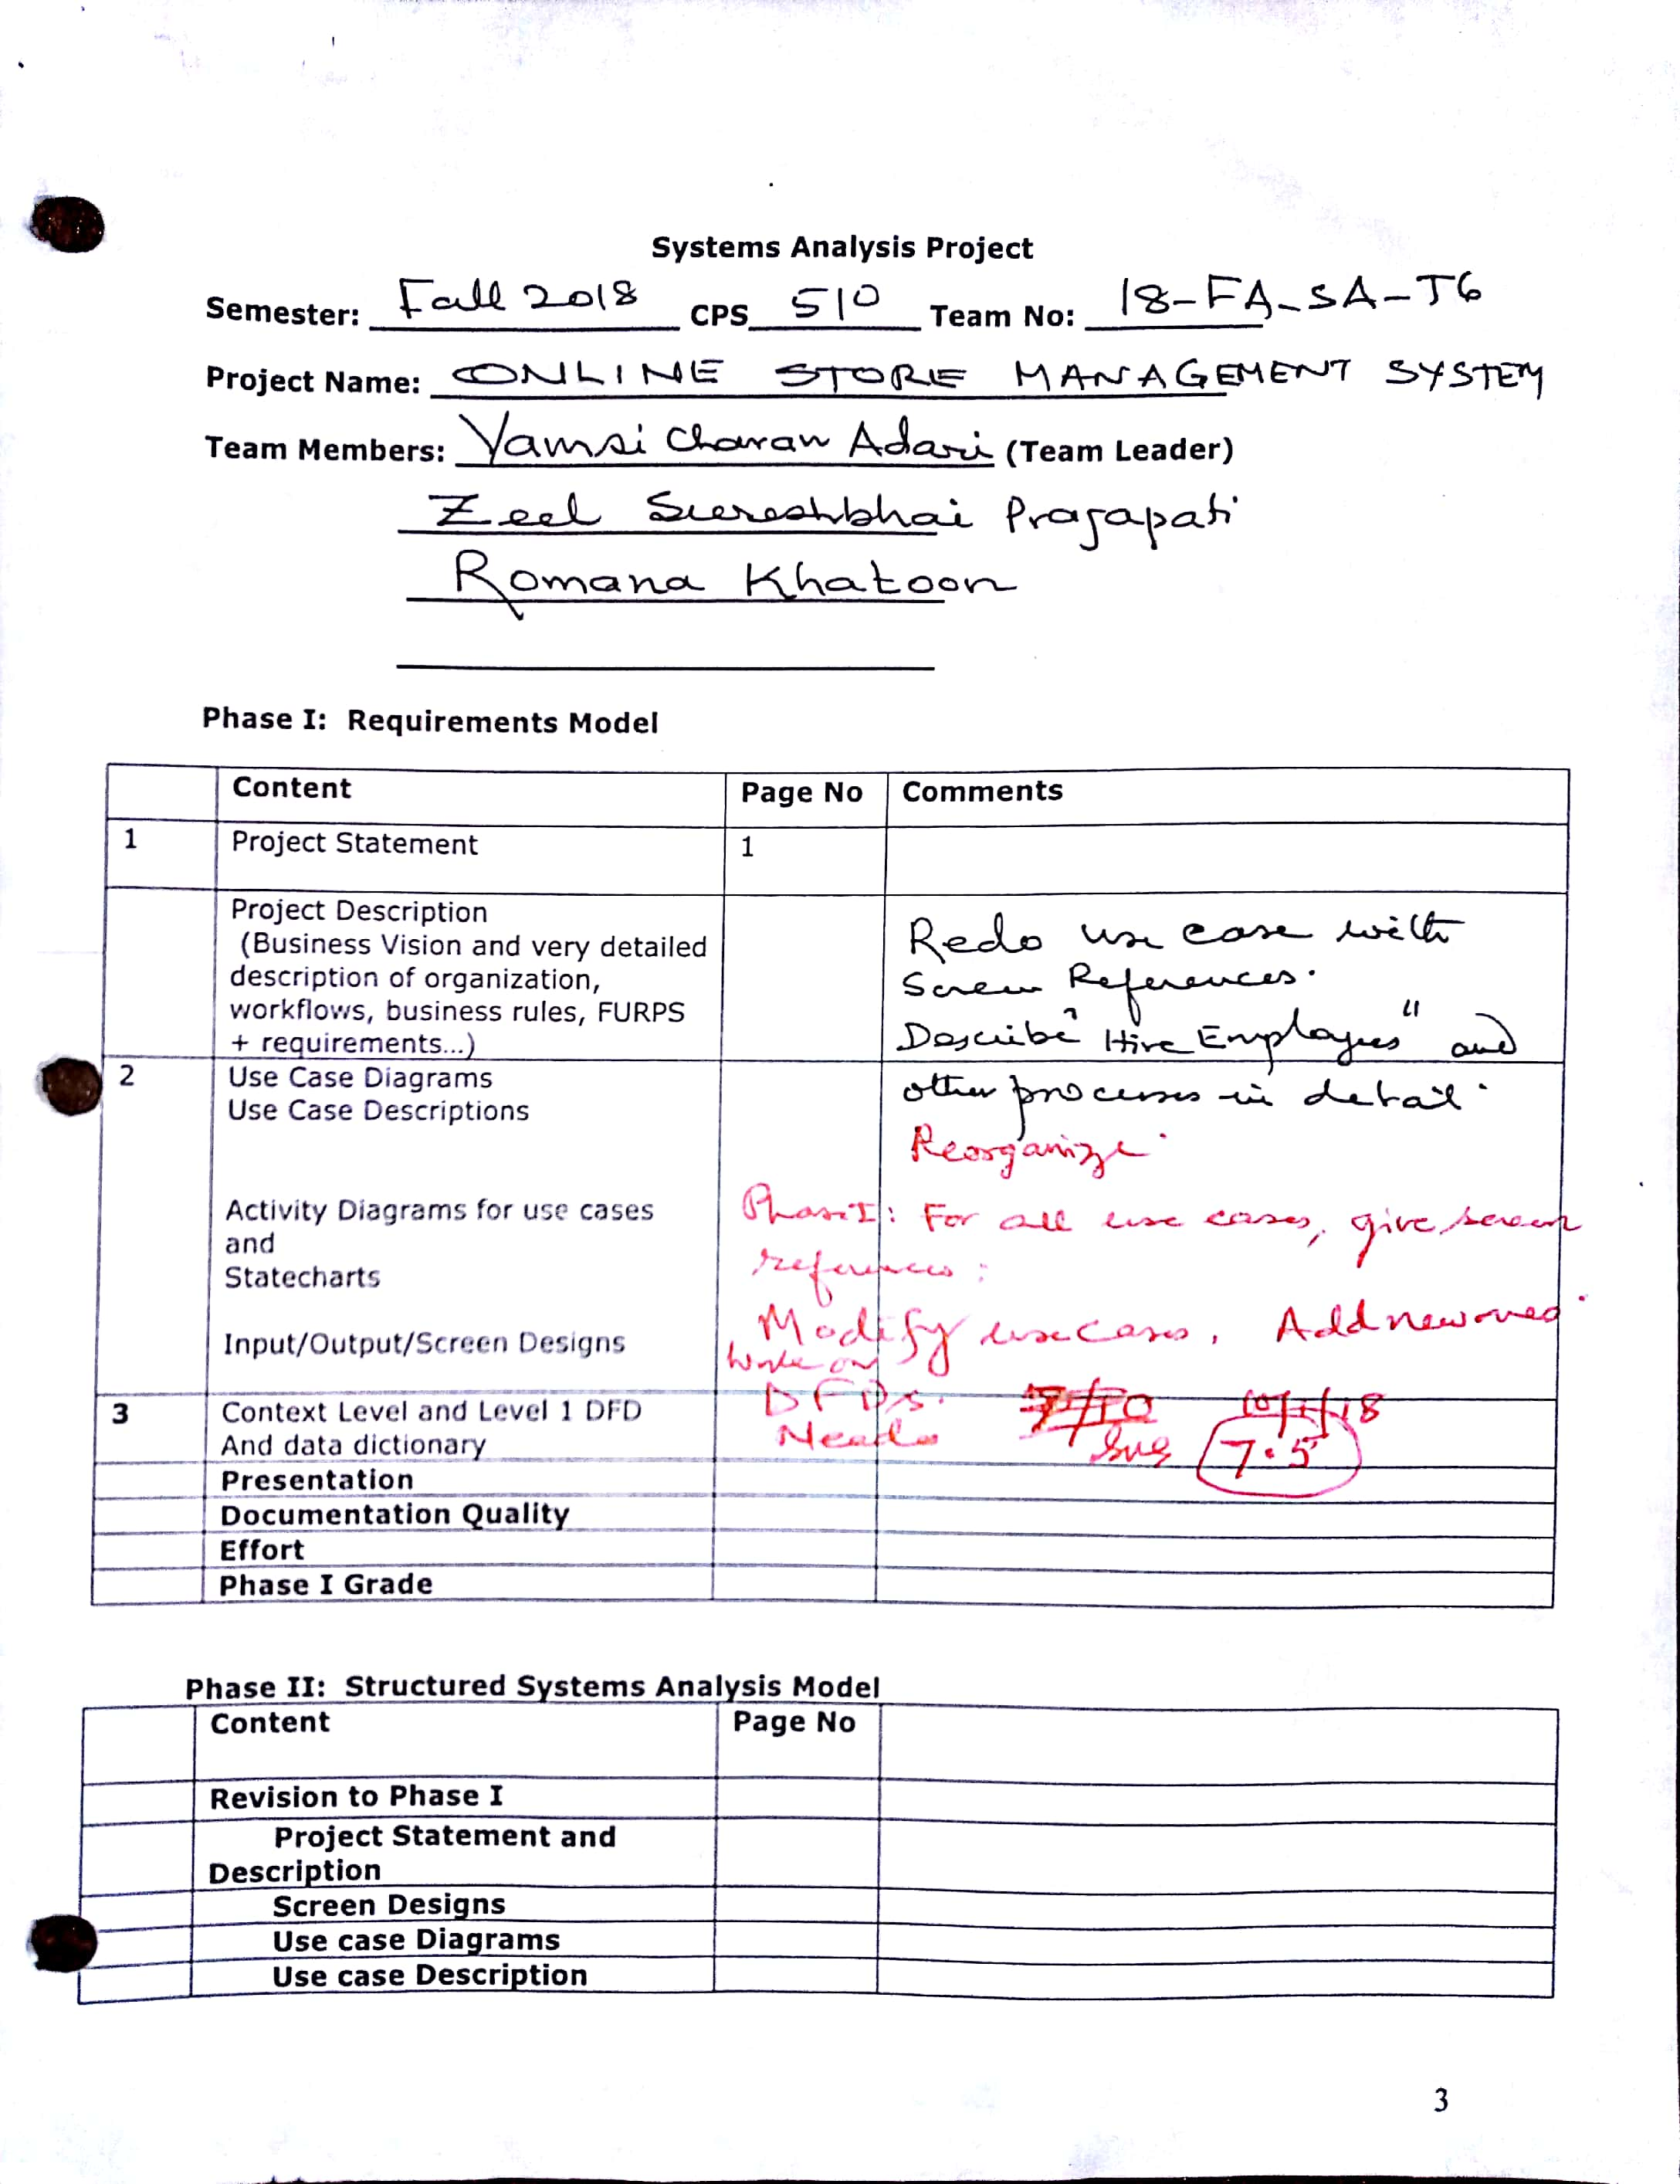 Systems Analysis Project
Semester: Fall 2018 CPS 510 Team No: 18-FA-SA-T6
Project Name: ONLINE STORE MANAGEMENT SYSTEM
Team Members: Vamsi Charan Adari (Team Leader)
Zeel Sureshbhai Prajapati
Romana Khatoon
Phase I: Requirements Model
Content Page No Comments
1 Project Statement 1
Project Description
(Business Vision and very detailed
description of organization,
workflows, business rules, FURPS
+ requirements...)
Redo use case with
Screen References.
Describe "Hire Employees" and
other processes in detail.
Reorganize.
2 Use Case Diagrams
Use Case Descriptions
Activity Diagrams for use cases
and
Statecharts
Input/Output/Screen Designs
Phase I: For all use cases, give screen
references:
Modify use cases, Add new ones.
Work on
DFDs.
Needs
3 Context Level and Level 1 DFD
And data dictionary
7/10 10/1/18
7.5
Presentation
Documentation Quality
Effort
Phase I Grade
Phase II: Structured Systems Analysis Model
Content Page No
Revision to Phase I
Project Statement and
Description
Screen Designs
Use case Diagrams
Use case Description
3